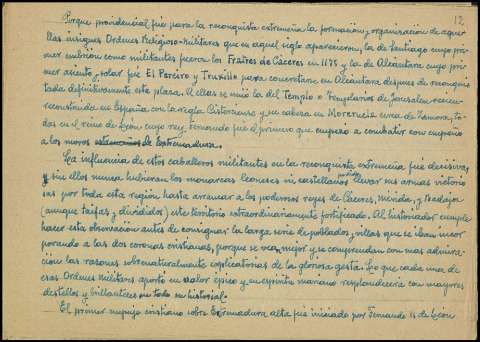 12
Porque providencial fué para la reconquista extremeña la formacion y organizacion de aque-
llas insignes Ordenes Religioso-Militares que en aquel siglo aparecieron, la de Santiago cuyo pri-
mer embrión como militantes fueron los Fratres de Cáceres en 1175 y la de Alcántara cuyo pri-
mer asiento y solar fué El Pereiro y Truxillo para concretarse en Alcántara despues de reconquis-
tada definitivamente esta plaza. A ellas se unió la del Temple o Templarios de Jerusalen
reconstruida en España con la regla Cisterciense y su cabeza en Moreruela cerca de Zamora, to-
das en el reino de León cuyo rey Fernando fué el primero que empezo a combatir con empeño
a los moros de Extremadura.
La influencia de estos caballeros militantes en la reconquista extremeña fué decisiva,
y sin ellos nunca hubieran los monarcas leoneses ni castellanos podido llevar sus armas victorio-
sas por toda esta región hasta arrancar a los poderosos reyes de Cáceres, Mérida, y Badajoz
(aunque taifas y divididos) este territorio extraordinariamente fortificado. Al historiador cumple
hacer esta observación antes de consignar la larga serie de poblados y villas que se iban incor
porando a las dos coronas cristianas, porque se vea mejor y se comprendan con mas admira-
ción las razones sobrenaturalmente explicatorias de la gloriosa gesta. Lo que cada una de
esas Ordenes Militares aportó en valor épico y en espíritu mariano resplandecerá con mayores
destellos y brillanteces en todo su historial.
El primer empuje cristiano sobre Extremadura alta fué iniciado por Fernando II de León